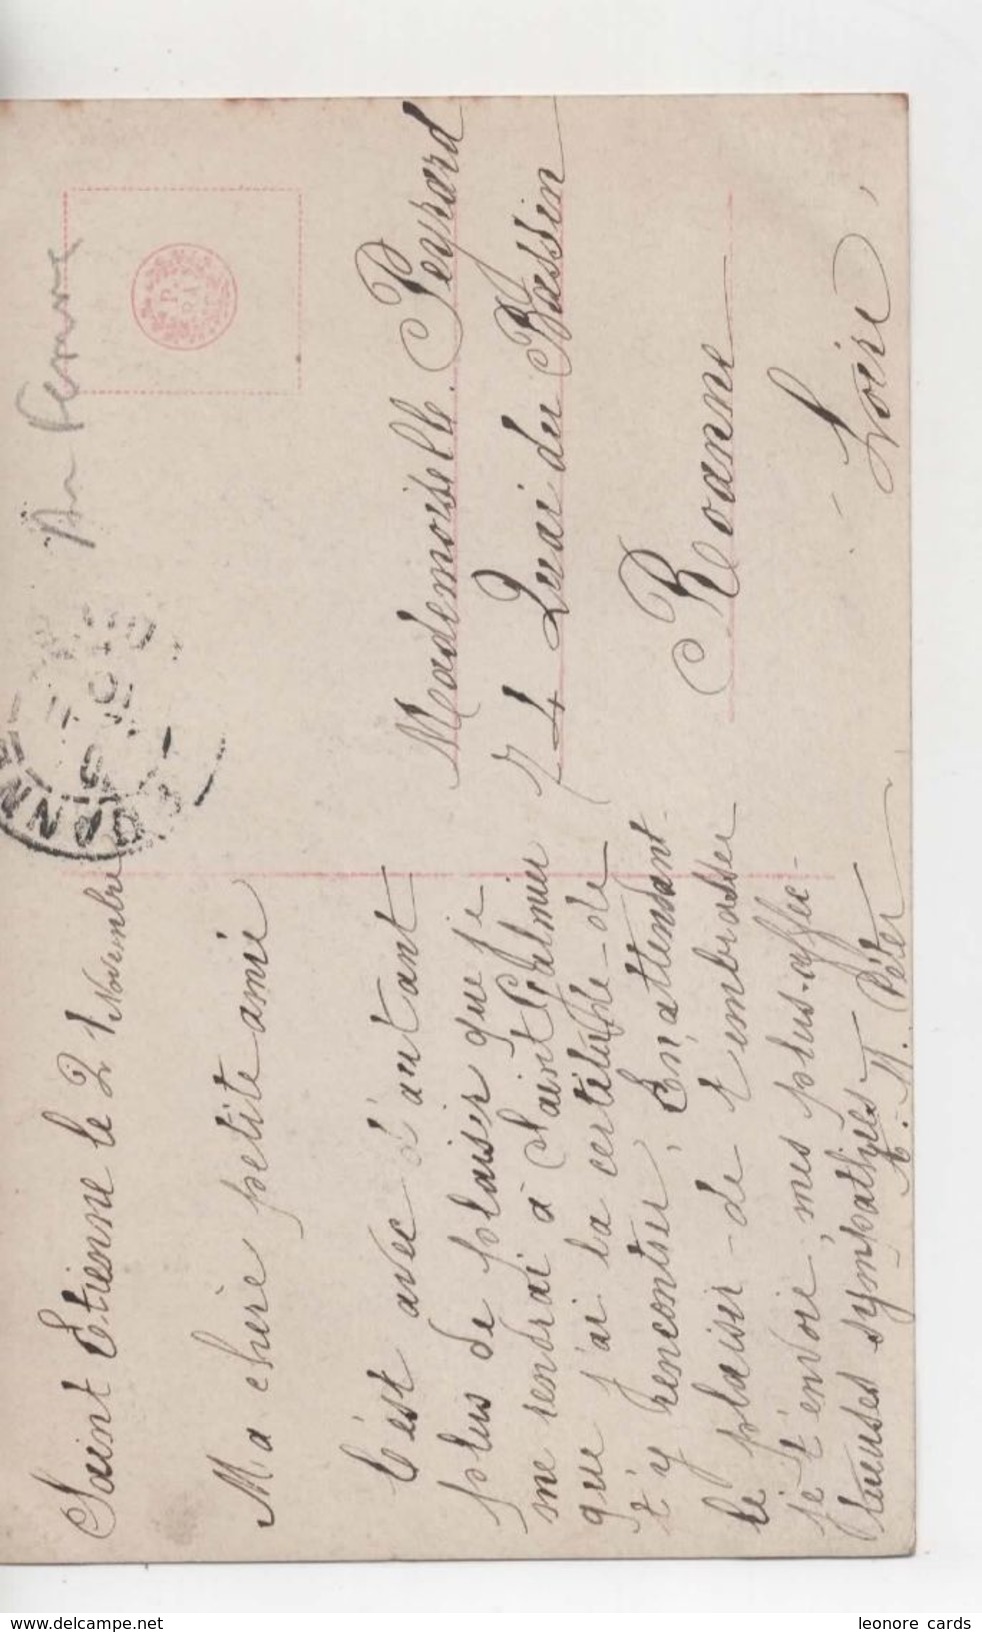 Saint Etienne le 21 Novembre
Ma chère petite amie
C'est avec d'autant
plus de plaisir que je
me rendrai à Saint Galmier
que j'ai la certitude de
t'y rencontrer, En attendant
le plaisir de t'embrasser
je t'envoie, mes plus affec-
tueuses sympathies
M. Péter
ROANNE
Mademoiselle. Peyrard
4 Quai du Bassin
Roanne
Loire
delcampe.net
leonore cards